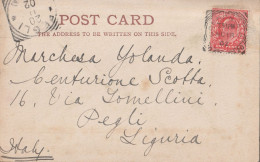 POST CARD
THE ADDRESS TO BE WRITTEN ON THIS SIDE.
Marchesa Yolanda,
Centurione Scotta,
16, Via Lomellini,
Pegli
Liguria
Italy.